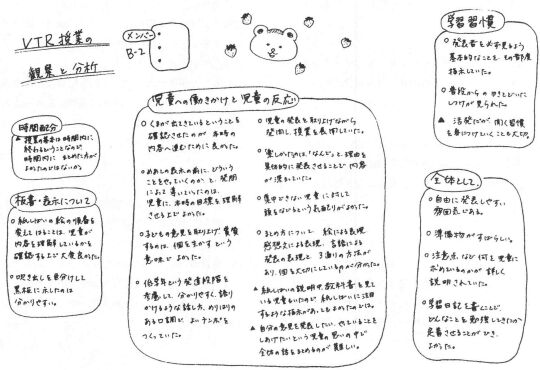 VTR授業の
観察と分析
メンバー
B-2
時間配分
▲ 授業の基本は時間内に
終わるということなので
時間内に まとめた方が
よかったのではないか。
板書・表示について
○ 紙しばいの絵の順番を
変えてはることは、児童が
内容を理解しているかを
確認する上で大変良かった。
○ 吹き出しを色分けして
黒板に示したのは
分かりやすい。
児童への働きかけと児童の反応
○ くまが出てきているということを
確認させたのが 本時の
内容へ進むために良かった。
○ めあての表示の前に、どういう
ことをやっていくのか、と、発問
によって導いていったのは、
児童に、本時の目標を理解
させる上でよかった。
○ 子どもの意見を取り上げ賞賛
するのは、個を生かすという
意味でよかった。
○ 低学年という発達段階を
考慮して、分かりやすく、語り
かけるような話し方、めりはりの
ある口調で よいテンポを
つくっていた。
○ 児童の発表を取り上げながら
発問し、授業を展開していた。
○ 楽しかったのは「なんで」と、理由を
具体的に発表させることで内容
が深まっていた。
○ 集中できない児童に対して
頭をなでるという気配りがよかった。
○ まとめ方について 絵による表現
感想文による表現、言語による
発表の表現と 3通りの方法が
あり、個を大切にしているのが分かった。
▲ 紙しばいの説明中、教科書を見て
いる児童もいたので 紙しばいに注目
するような指示があってもよかったのでは。
▲ 自分の意見を発表したい、やっていることを
してあげたいという児童の思いの中で
全体の話をまとめるのが難しい。
学習習慣
○ 発表者を必ず見るよう
基本的なことを その都度
指示していた。
○ 普段からのゆきとどいた
しつけが見られた。
▲ 活発だが 聞く習慣
を身につけていくことも大切。
全体として
○ 自由に発表しやすい
雰囲気である。
○ 準備物がすばらしい。
○ 注意点など何を児童に
求めているのかが詳しく
説明されていた。
○ 学習日記を書くことで
どんなことを勉強してきたか
定着させることができ、
よかった。